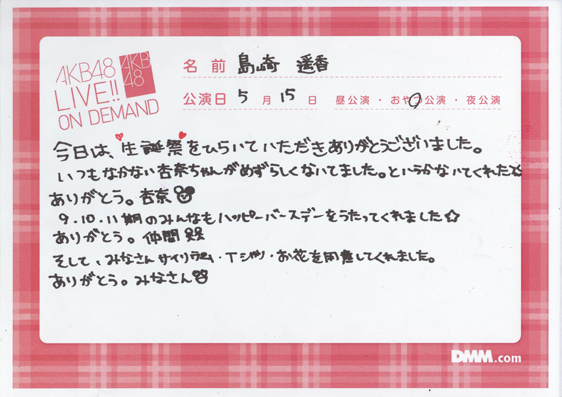 AKB48
LIVE!!
ON DEMAND
AKB
48
名前 島崎 遥香
公演日 5月15日 昼公演・おやつ公演・夜公演
今日は、生誕祭をひらいていただきありがとうございました。
いつもなかない杏奈ちゃんがめずらしくないてました。というかないてくれた
ありがとう。杏奈
9.10.11期のみんなもハッピーバースデーをうたってくれました☆
ありがとう。仲間
そして、みなさんサイリウム・Tシャツ・お花を用意してくれました。
ありがとう。みなさん
DMM.com